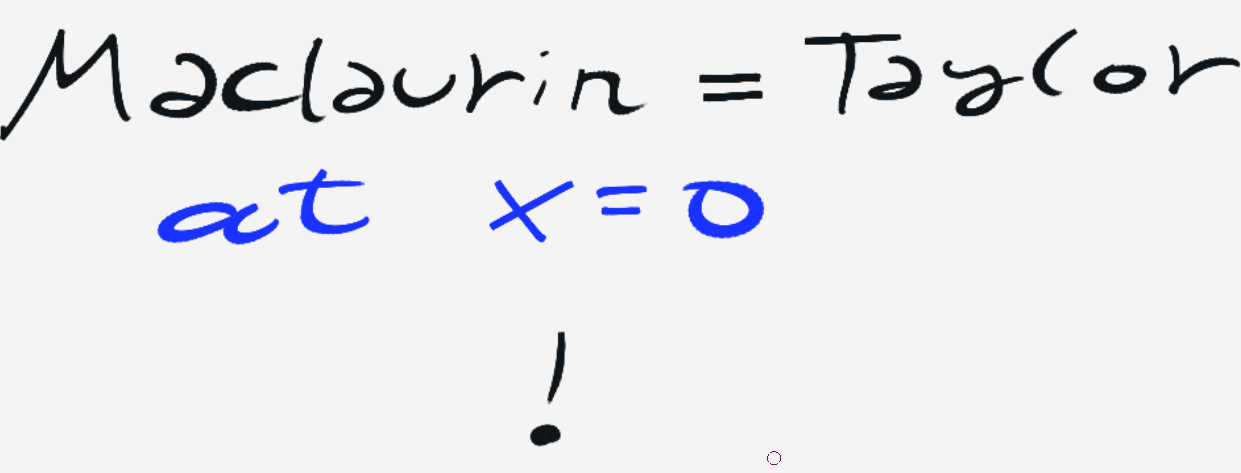 Maclaurin = Taylor
at x = 0
!